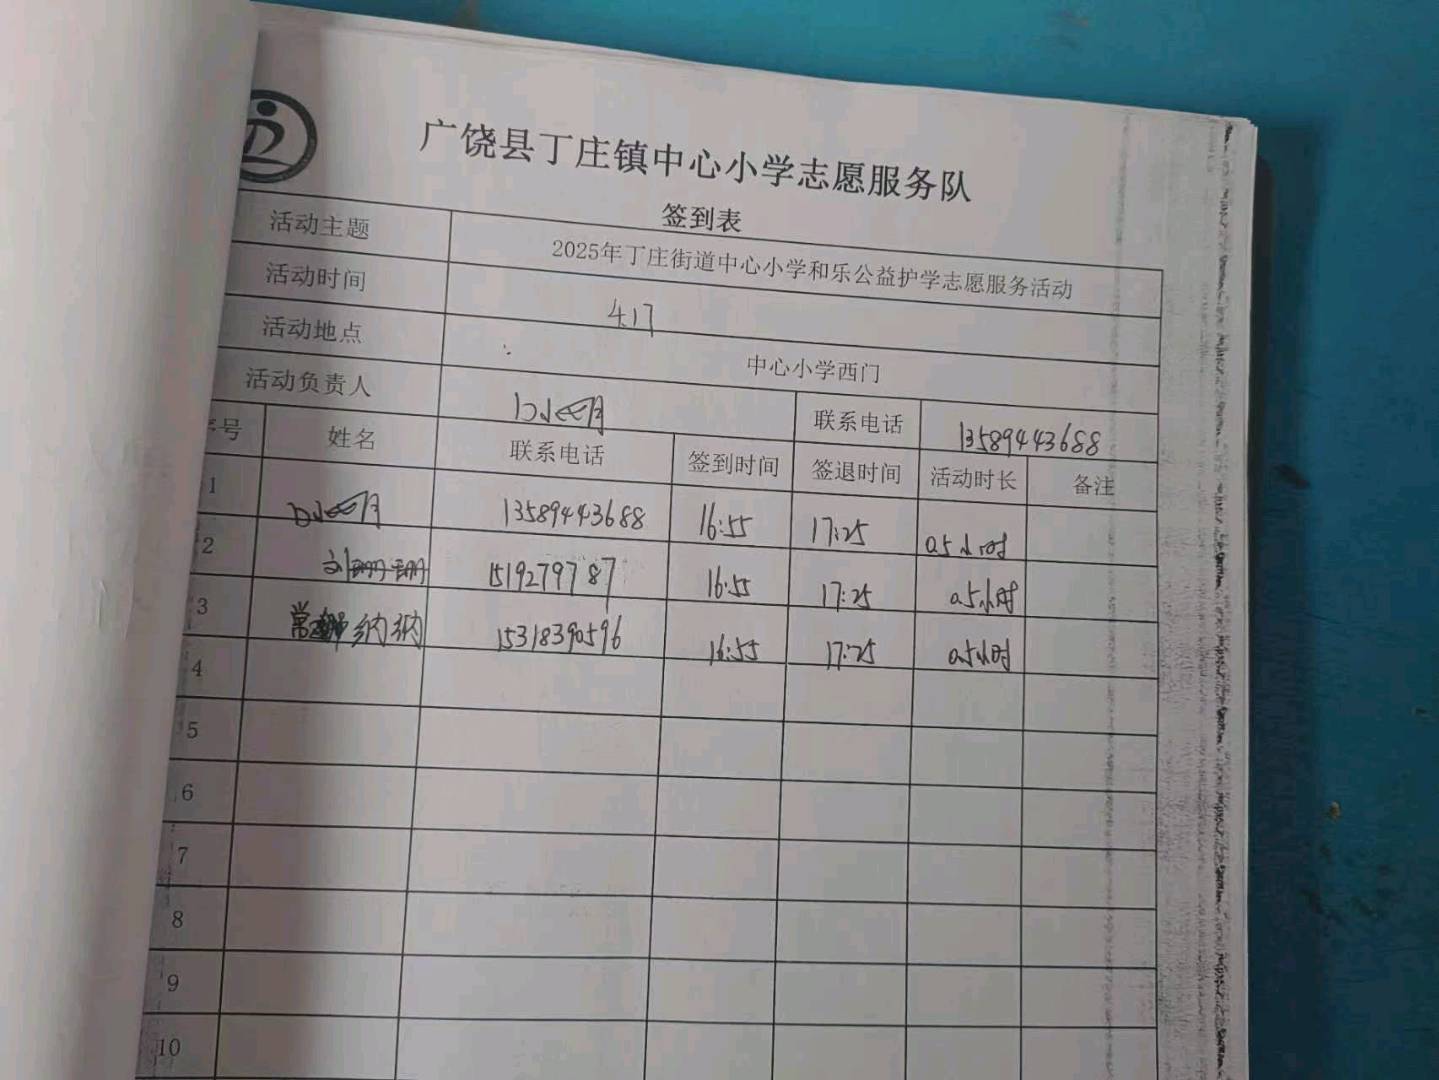 广饶县丁庄镇中心小学志愿服务队
签到表
活动主题 2025年丁庄街道中心小学和乐公益护学志愿服务活动
活动时间 4.17
活动地点 中心小学西门
活动负责人 联系电话 13589443688
序号 姓名 联系电话 签到时间 签退时间 活动时长 备注
1 13589443688 16:55 17:25 0.5小时
2 刘珊珊 1519279787 16:55 17:25 0.5小时
3 常纳纳 15318390596 16:55 17:25 0.5小时
4
5
6
7
8
9
10